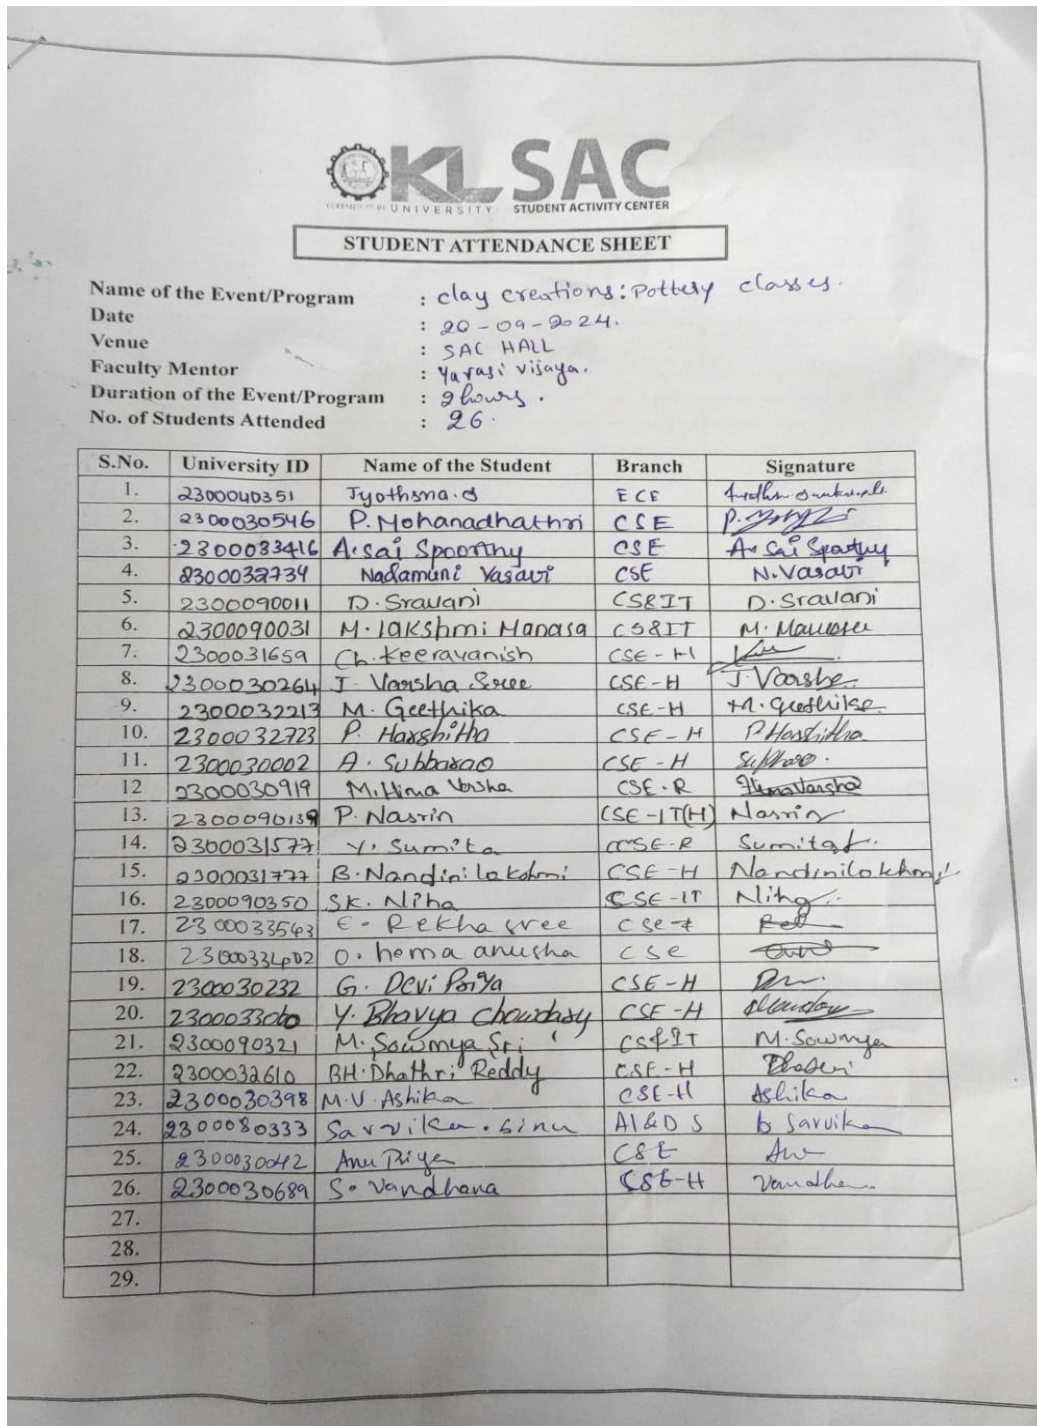 KL SAC
UNIVERSITY STUDENT ACTIVITY CENTER
STUDENT ATTENDANCE SHEET
Name of the Event/Program : clay creations: Pottery classes.
Date : 20-09-2024.
Venue : SAC HALL
Faculty Mentor : Yarasi Vijaya.
Duration of the Event/Program : 2 hours.
No. of Students Attended : 26.
S.No. University ID Name of the Student Branch Signature
1. 2300040351 Jyothsna. ECE
2. 2300030546 P. Mohanadhathri CSE
3. 2300033416 A. Sai Spoorthy CSE A. Sai Spoorthy
4. 2300032734 Nadamuni Vasavi CSE N. Vasavi
5. 2300090011 D. Sravani CS&IT D. Sravani
6. 2300090031 M. lakshmi Manasa CS&IT M.
7. 2300031659 Ch. Keeravanish CSE-H
8. 2300030264 J. Varsha Sree CSE-H J. Varsha
9. 2300032213 M. Geethika CSE-H M. Geethika
10. 2300032723 P. Harshitha CSE-H P Harshitha
11. 2300030002 A. Subbarao CSE-H
12 2300030919 M. Hima Varsha CSE-R HimaVarsha
13. 2300090139 P. Nasrin CSE-IT(H) Nasrin
14. 2300031577 Y. Sumita CSE-R
15. 2300031777 B. Nandini lakshmi CSE-H
16. 2300090350 SK. Niha CSE-IT Niha
17. 2300033543 E. Rekha sree
18. O. hema anusha cse
19. 2300030232 G. Devi Priya CSE-H
20. Y. Bhavya Chowdary CSE-H
21. 2300090321 M. Sowmya Sri CS&IT M. Sowmya
22. 2300032610 BH. Dhathri Reddy CSE-H
23. 2300030398 M.V. Ashika CSE-H Ashika
24. 2300080333 Sarvika. AI&DS Sarvika
25. 2300030042 Anu Priya CSE
26. 2300030689 S. Vandhana CSE-H
27.
28.
29.